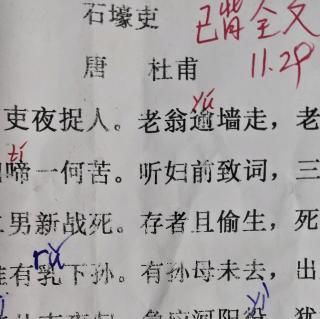 石壕吏
已背全文
唐 杜甫
11.29
yú
吏夜捉人。老翁逾墙走，老
tí
啼一何苦。听妇前致词，三
二男新战死。存者且偷生，死
rǔ
有乳下孙。有孙母未去，出
yì
急应河阳役，犹